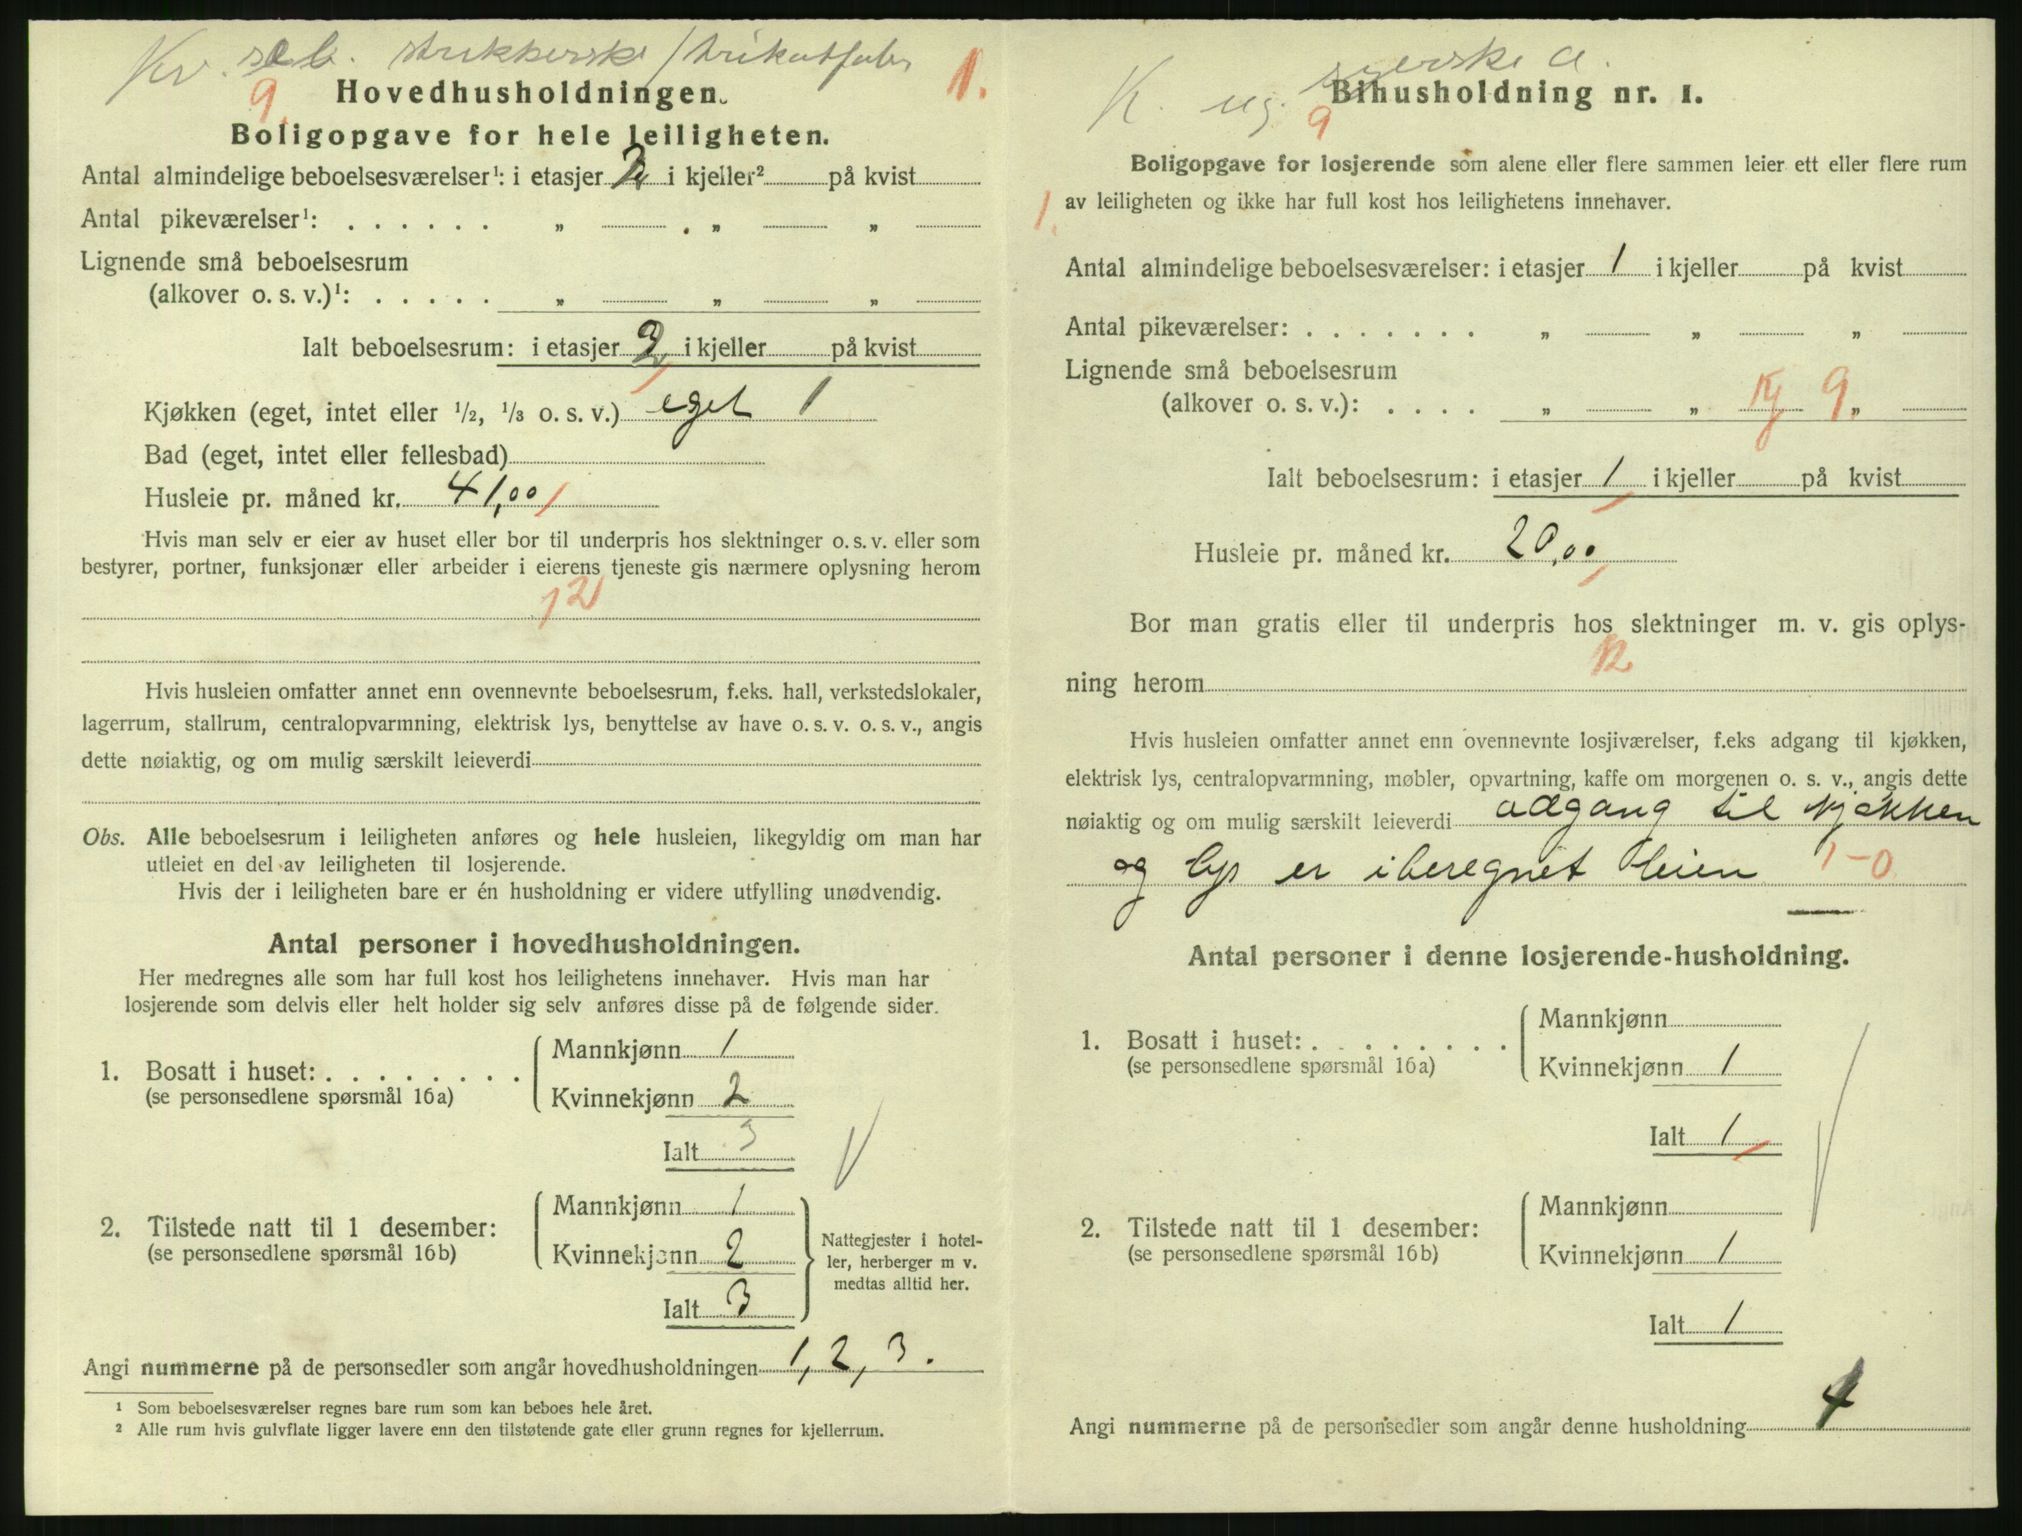 Kv. strikkerske / trikotfabr
1.
9.
Hovedhusholdningen.
Boligopgave for hele leiligheten.
Antal almindelige beboelsesværelser¹: i etasjer 2 i kjeller² på kvist
Antal pikeværelser¹: . . . . . . „ „ „
Lignende små beboelsesrum
(alkover o. s. v.)¹: . . . . . „ „ „
Ialt beboelsesrum: i etasjer 2 i kjeller på kvist
Kjøkken (eget, intet eller 1/2, 1/3 o. s. v.) eget 1
Bad (eget, intet eller fellesbad)
Husleie pr. måned kr. 41,00
Hvis man selv er eier av huset eller bor til underpris hos slektninger o. s. v. eller som
bestyrer, portner, funksjonær eller arbeider i eierens tjeneste gis nærmere oplysning herom
12
Hvis husleien omfatter annet enn ovennevnte beboelsesrum, f.eks. hall, verkstedslokaler,
lagerrum, stallrum, centralopvarmning, elektrisk lys, benyttelse av have o. s. v. o. s. v., angis
dette nøiaktig, og om mulig særskilt leieverdi
Obs. Alle beboelsesrum i leiligheten anføres og hele husleien, likegyldig om man har
utleiet en del av leiligheten til losjerende.
Hvis der i leiligheten bare er én husholdning er videre utfylling unødvendig.
Antal personer i hovedhusholdningen.
Her medregnes alle som har full kost hos leilighetens innehaver. Hvis man har
losjerende som delvis eller helt holder sig selv anføres disse på de følgende sider.
1. Bosatt i huset: . . . . . . . .
(se personsedlene spørsmål 16a)
Mannkjønn 1
Kvinnekjønn 2
Ialt 3
2. Tilstede natt til 1 desember:
(se personsedlene spørsmål 16b)
Mannkjønn 1
Kvinnekjønn 2
Ialt 3
Nattegjester i hotel-
ler, herberger m v.
medtas alltid her.
Angi nummerne på de personsedler som angår hovedhusholdningen 1, 2, 3.
¹ Som beboelsesværelser regnes bare rum som kan beboes hele året.
² Alle rum hvis gulvflate ligger lavere enn den tilstøtende gate eller grunn regnes for kjellerrum.
K. ug. syerske a.
9
Bihusholdning nr. 1.
Boligopgave for losjerende som alene eller flere sammen leier ett eller flere rum
1. av leiligheten og ikke har full kost hos leilighetens innehaver.
Antal almindelige beboelsesværelser: i etasjer 1 i kjeller på kvist
Antal pikeværelser: . . . . . . . „ „ „
Lignende små beboelsesrum
(alkover o. s. v.): . . . . „ „ Kj 9. „
Ialt beboelsesrum: i etasjer 1 i kjeller på kvist
Husleie pr. måned kr. 20,00
Bor man gratis eller til underpris hos slektninger m. v. gis oplys-
12
ning herom
Hvis husleien omfatter annet enn ovennevnte losjiværelser, f.eks adgang til kjøkken,
elektrisk lys, centralopvarmning, møbler, opvartning, kaffe om morgenen o. s. v., angis dette
nøiaktig og om mulig særskilt leieverdi adgang til kjøkken
og lys er iberegnet leien 1-0
Antal personer i denne losjerende-husholdning.
1. Bosatt i huset: . . . . . . . .
(se personsedlene spørsmål 16a)
Mannkjønn
Kvinnekjønn 1
Ialt 1
2. Tilstede natt til 1 desember:
(se personsedlene spørsmål 16b)
Mannkjønn
Kvinnekjønn 1
Ialt 1
Angi nummerne på de personsedler som angår denne husholdning 4